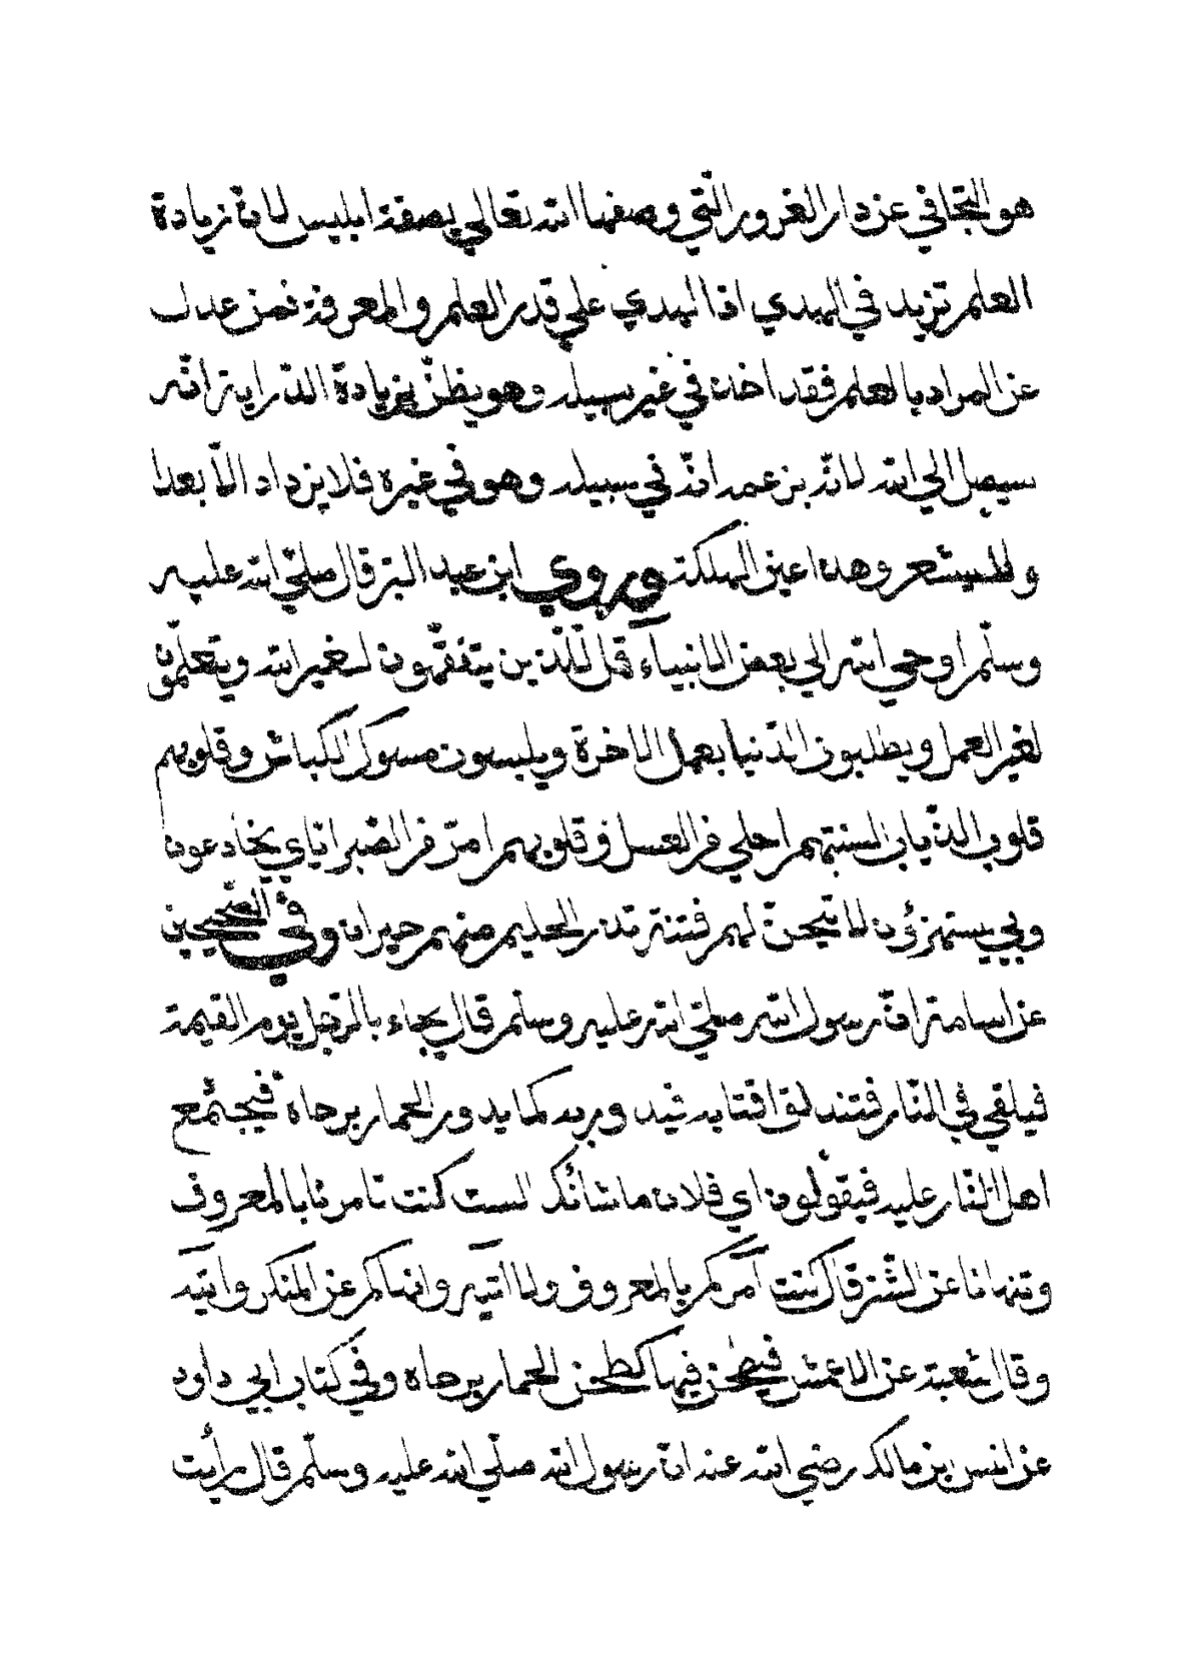 هو التجافي عن دار الغرور التي وصفها الله تعالي بصفة ابليس لان زيادة
العلم تزيد في الهدي اذا الهدي علي قدر العلم والمعرفة فمن عدل
عن المراد بالعلم فقد اخذ في غير سبيله وهو يظنّ بزيادة الدّراية انّه
سيصل الي الله لانّه يزعم انّه في سبيله وهو في غيره فلا يزداد الاّ بعدا
ولا يستعر وهذا عين الهلكة وروي ابن عبد البرّ قال صلّي الله عليه
وسلّم اوحي الله الي بعض الانبياء قل للّذين يتفقّهون لغير الله ويتعلّمون
لغير العمل ويطلبون الدّنيا بعمل الاخرة ويلبسون مسوك الكباش وقلوبهم
قلوب الذّياب السنتهم احلي من العسل وقلوبهم امرّ من الصّبر ايّاي يخادعون
وبي يستهزؤن لاتيحنّ لهم فتنة تذر الحليم منهم حيران وفي الصّحيحين
عن اسامة انّ رسول الله صلّي الله عليه وسلّم قال يجاء بالرّجل يوم القيمة
فيلقي في النّار فتندلق اقتابه فيدور به كما يدور الحمار برحاه فيجتمع
اهل النّار عليه فيقولون اي فلان ما شانك الست كنت تامرنا بالمعروف
وتنهانا عن الشّر قال كنت آمركم بالمعروف ولا اتيه وانهاكم عن المنكر وآتيه
وقال شعبة عن الاعمش فيطحن فيها كطحن الحمار برحاه وفي كتاب ابي داود
عن انس بن مالك رضي الله عنه انّ رسول الله صلّي الله عليه وسلّم قال رأيت